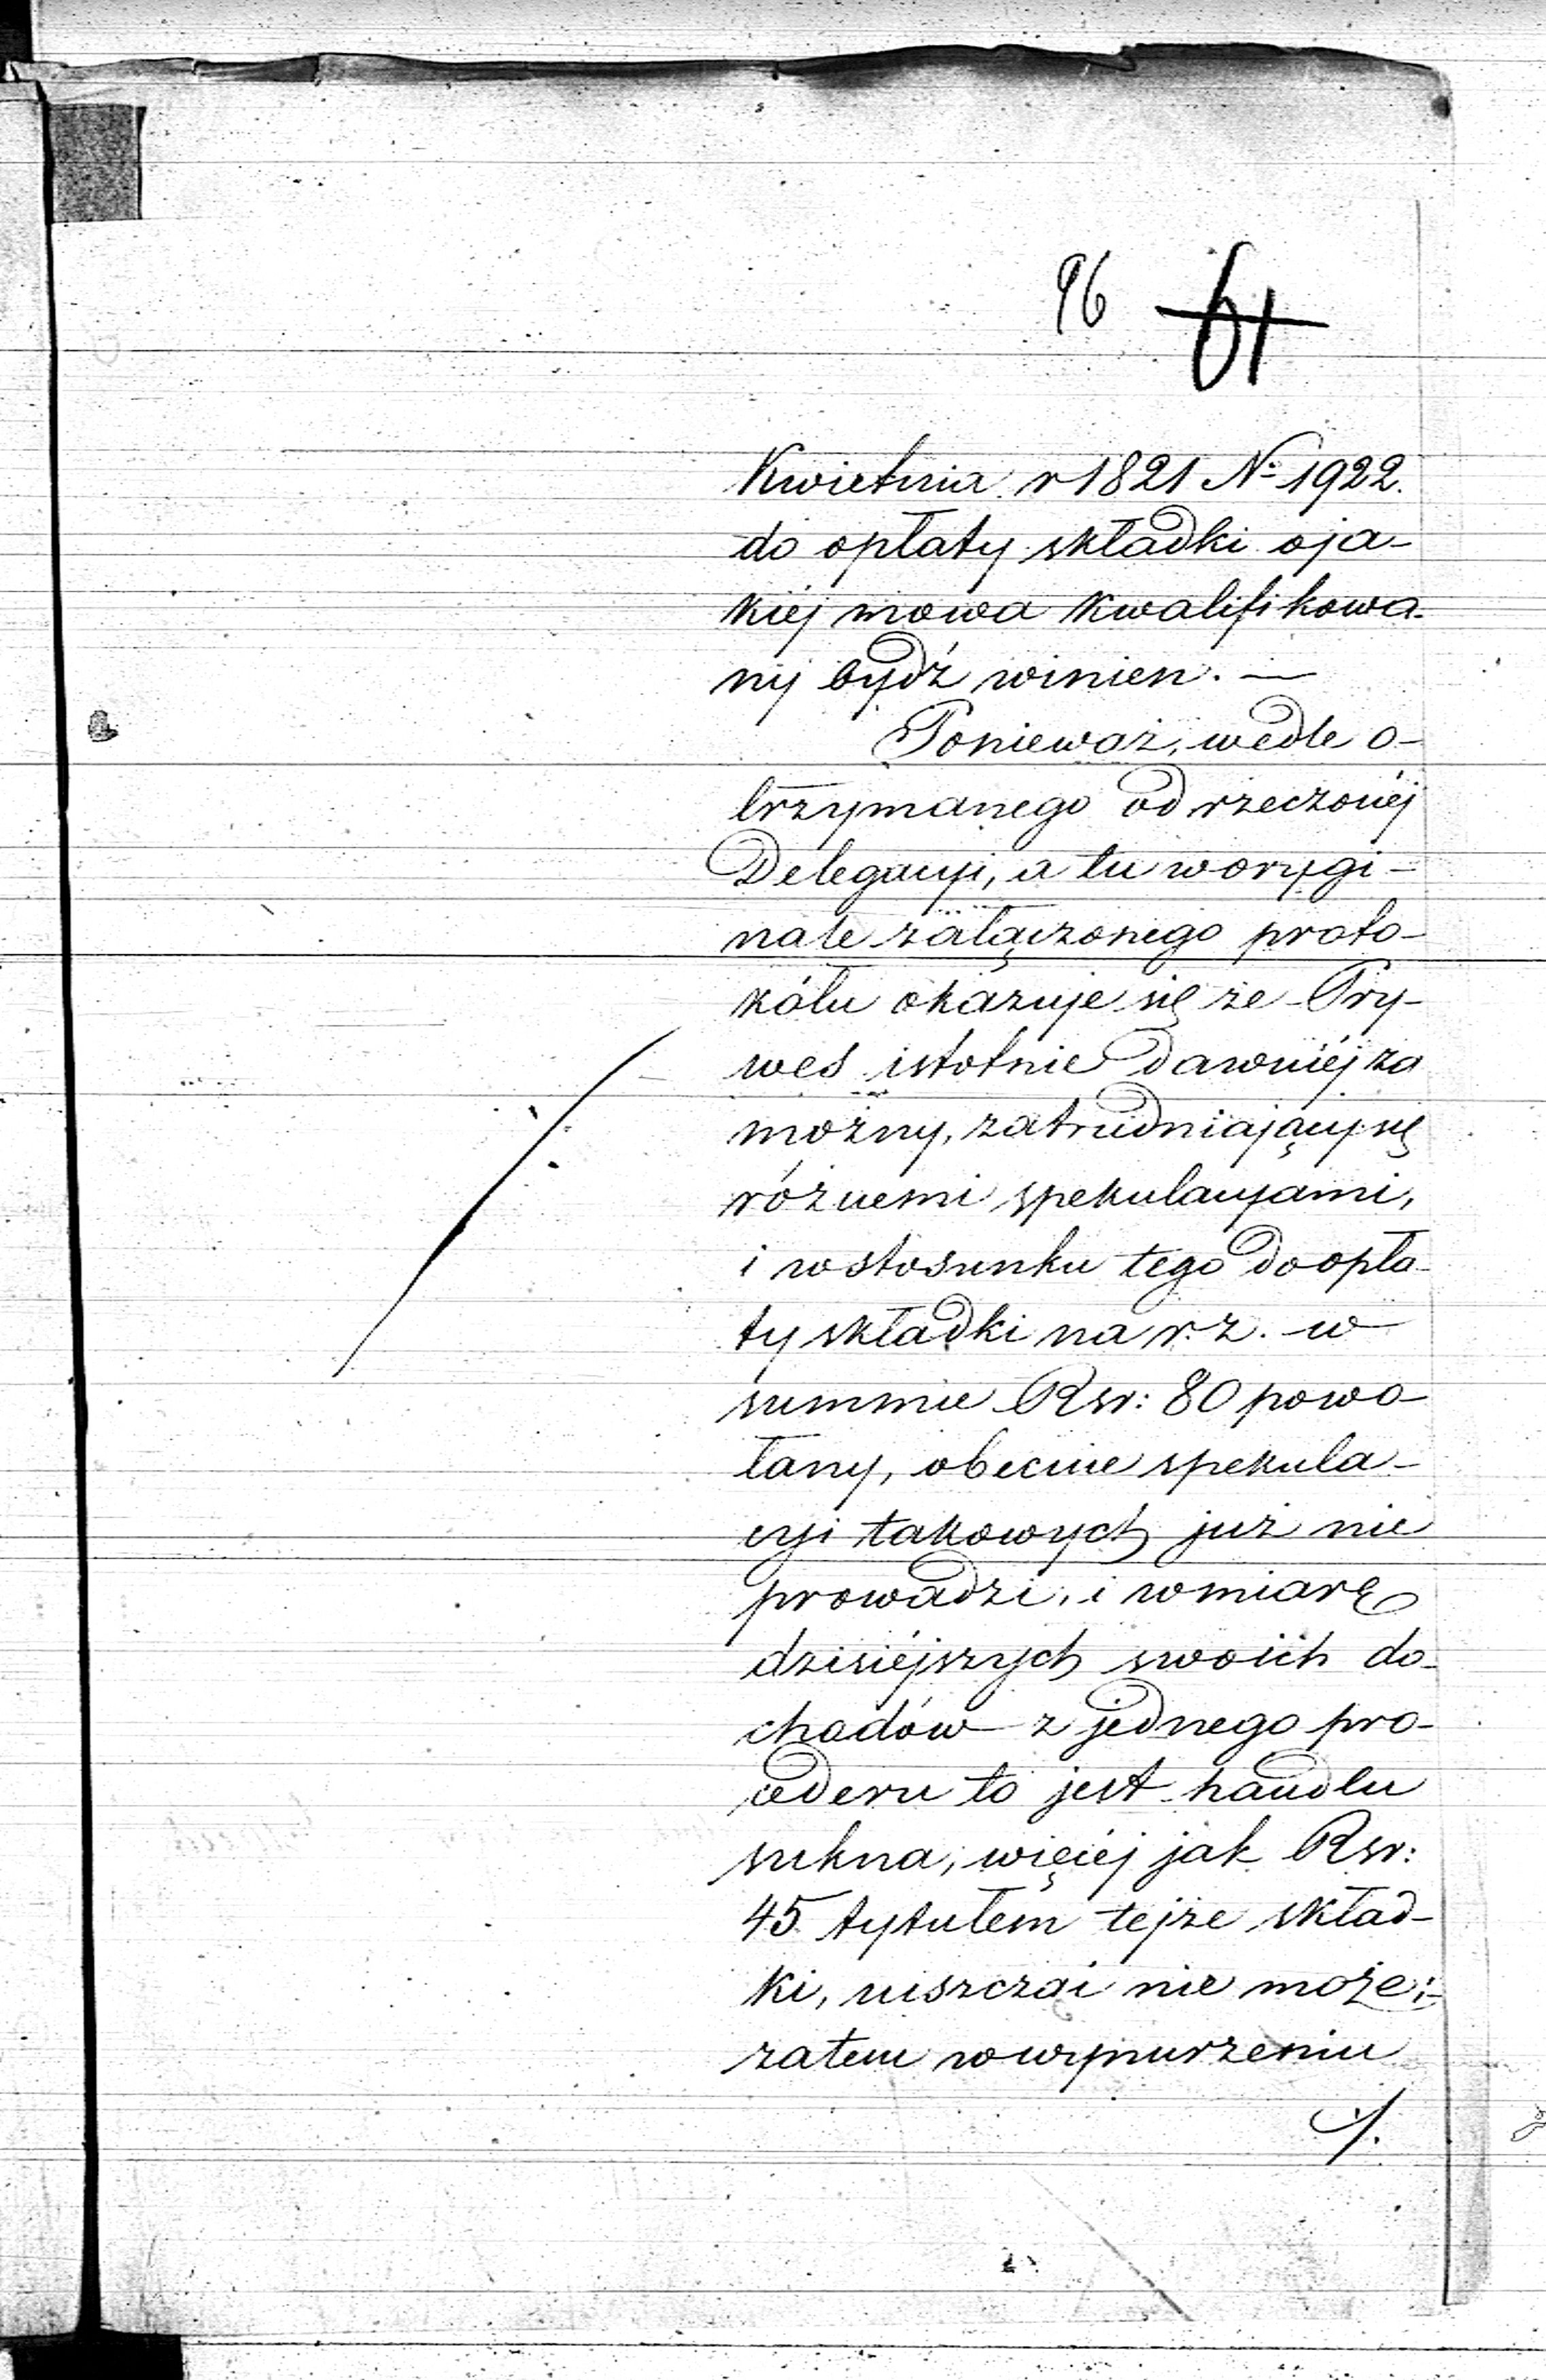 96 61
Kwietnia r 1821 № 1922.
do opłaty składki oja-
kiéj mowa kwalifikowa-
ny bydź winien. —
Ponieważ, wedle o-
trzymanego od rzeczonéj
Delegacyi, a tu w orygi-
nale załączonego proto-
kółu okazuje się że Pry-
wes istotnie dawniéj za
możny, zatrudniający się
różnemi spekulacyami,
i w stosunku tego do opła-
ty składki na r. z. w
summie Rsr: 80 powo-
łany, obecnie spekula-
cyi takowych już nie
prowadzi, i w miarę
dzisiéjszych swoich do-
chodów z jednego pro-
cederu to jest handlu
sukna, więcéj jak Rsr:
45 tytułem tejże skład-
ki, uiszczać nie może;-
zatem w wynurzeniu
./.